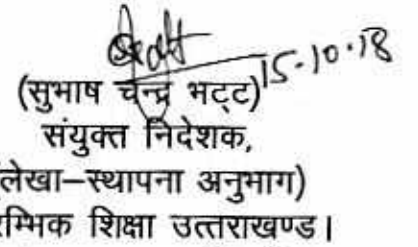 15.10.18
(सुभाष चन्द्र भट्ट)
संयुक्त निदेशक,
लेखा–स्थापना अनुभाग)
रम्भिक शिक्षा उत्तराखण्ड।